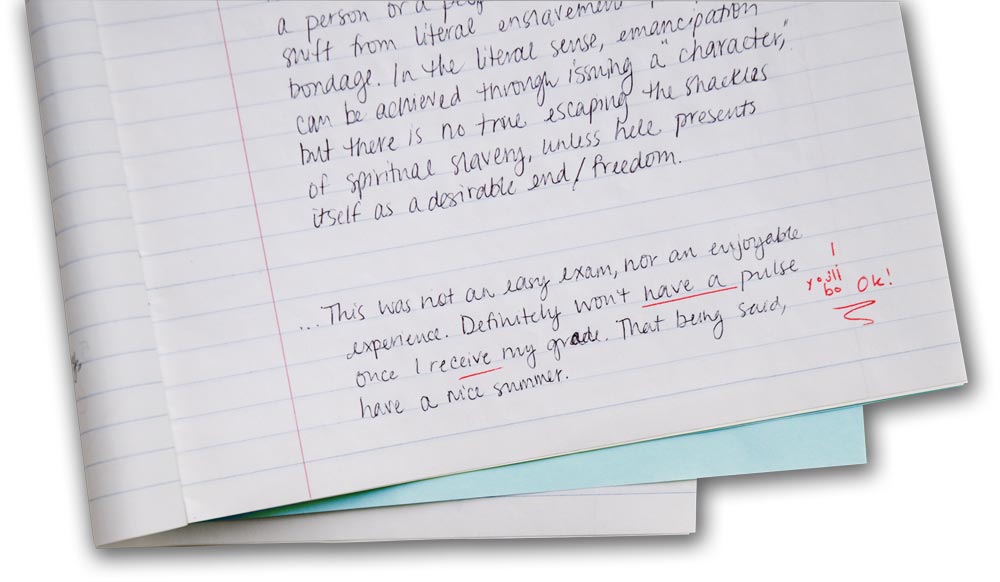 a person or a
shift from literal enslavement
bondage. In the literal sense, emancipation
can be achieved through issuing a "character,"
but there is no true escaping the shackles
of spiritual slavery, unless hell presents
itself as a desirable end/freedom.
...This was not an easy exam, nor an enjoyable
experience. Definitely won't have a pulse
once I receive my grade. That being said,
have a nice summer.
you'll
be Ok!